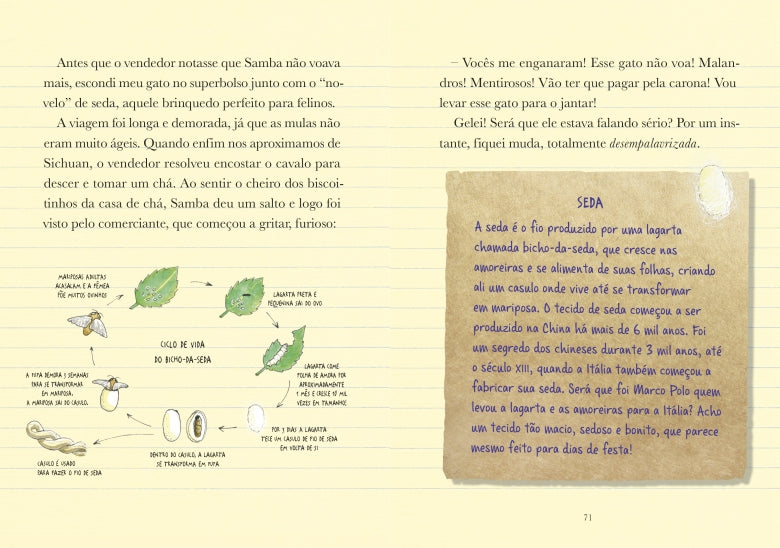 Antes que o vendedor notasse que Samba não voava
mais, escondi meu gato no superbolso junto com o “no-
velo” de seda, aquele brinquedo perfeito para felinos.
A viagem foi longa e demorada, já que as mulas não
eram muito ágeis. Quando enfim nos aproximamos de
Sichuan, o vendedor resolveu encostar o cavalo para
descer e tomar um chá. Ao sentir o cheiro dos biscoi-
tinhos da casa de chá, Samba deu um salto e logo foi
visto pelo comerciante, que começou a gritar, furioso:
MARIPOSAS ADULTAS
ACASALAM E A FÊMEA
PÕE MUITOS OVINHOS
LAGARTA PRETA E
PEQUENINA SAI DO OVO
CICLO DE VIDA
DO BICHO-DA-SEDA
LAGARTA COME
FOLHA DE AMORA POR
APROXIMADAMENTE
1 MÊS E CRESCE 10 MIL
VEZES EM TAMANHO!
A PUPA DEMORA 3 SEMANAS
PARA SE TRANSFORMAR
EM MARIPOSA.
A MARIPOSA SAI DO CASULO.
POR 3 DIAS A LAGARTA
TECE UM CASULO DE FIO DE SEDA
EM VOLTA DE SI
DENTRO DO CASULO, A LAGARTA
SE TRANSFORMA EM PUPA
CASULO É USADO
PARA FAZER O FIO DE SEDA
– Vocês me enganaram! Esse gato não voa! Malan-
dros! Mentirosos! Vão ter que pagar pela carona! Vou
levar esse gato para o jantar!
Gelei! Será que ele estava falando sério? Por um ins-
tante, fiquei muda, totalmente desempalavrizada.
SEDA
A seda é o fio produzido por uma lagarta
chamada bicho-da-seda, que cresce nas
amoreiras e se alimenta de suas folhas, criando
ali um casulo onde vive até se transformar
em mariposa. O tecido de seda começou a ser
produzido na China há mais de 6 mil anos. Foi
um segredo dos chineses durante 3 mil anos, até
o século XIII, quando a Itália também começou a
fabricar sua seda. Será que foi Marco Polo quem
levou a lagarta e as amoreiras para a Itália? Acho
um tecido tão macio, sedoso e bonito, que parece
mesmo feito para dias de festa!
71